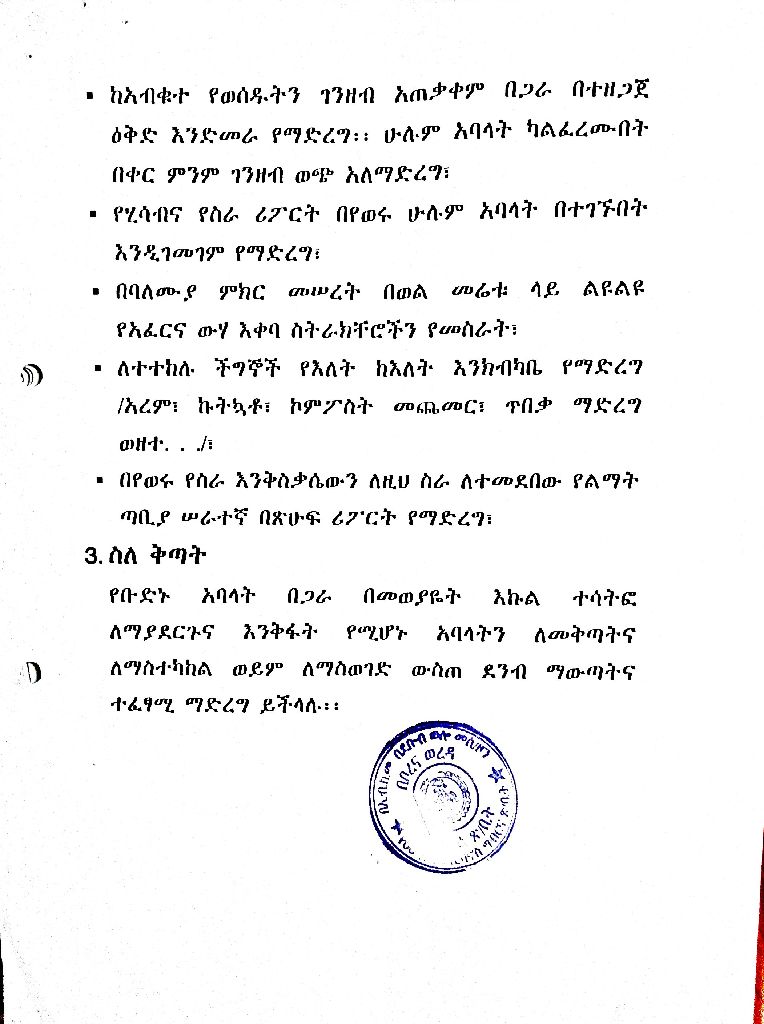 ▪ ከአብቁተ የወሰዱትን ገንዘብ አጠቃቀም በጋራ በተዘጋጀ
ዕቅድ እንድመራ የማድረግ፡፡ ሁሉም አባላት ካልፈረሙበት
በቀር ምንም ገንዘብ ወጭ አለማድረግ፣
▪ የሂሳብና የስራ ሪፖርት በየወሩ ሁሉም አባላት በተገኙበት
እንዲገመገም የማድረግ፣
▪ በባለሙያ ምክር መሠረት በወል መሬቱ ላይ ልዩልዩ
የአፈርና ውሃ እቀባ ስትራክቸሮችን የመስራት፣
▪ ለተተከሉ ችግኞች የእለት ከእለት እንክብካቤ የማድረግ
/አረም፣ ኩትኳቶ፣ ኮምፖስት መጨመር፣ ጥበቃ ማድረግ
ወዘተ. . ./፣
▪ በየወሩ የስራ እንቅስቃሴውን ለዚህ ስራ ለተመደበው የልማት
ጣቢያ ሠራተኛ በጽሁፍ ሪፖርት የማድረግ፣
3. ስለ ቅጣት
የቡድኑ አባላት በጋራ በመወያዬት እኩል ተሳትፎ
ለማያደርጉና እንቅፋት የሚሆኑ አባላትን ለመቅጣትና
ለማስተካከል ወይም ለማስወገድ ውስጠ ደንብ ማውጣትና
ተፈፃሚ ማድረግ ይችላሉ፡፡
በአብክመ በደቡብ ወሎ መስ/ዞን
ወረዳ
ጽ/ቤት